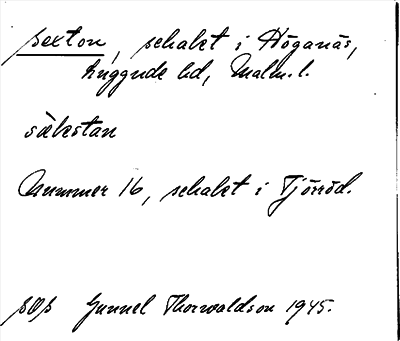 sexton, schakt i Höganäs,
Luggude hd, Malm. l.
säkstan
Nummer 16, schakt i Tjörröd.
sOs Gunnel Thorwaldson 1945.